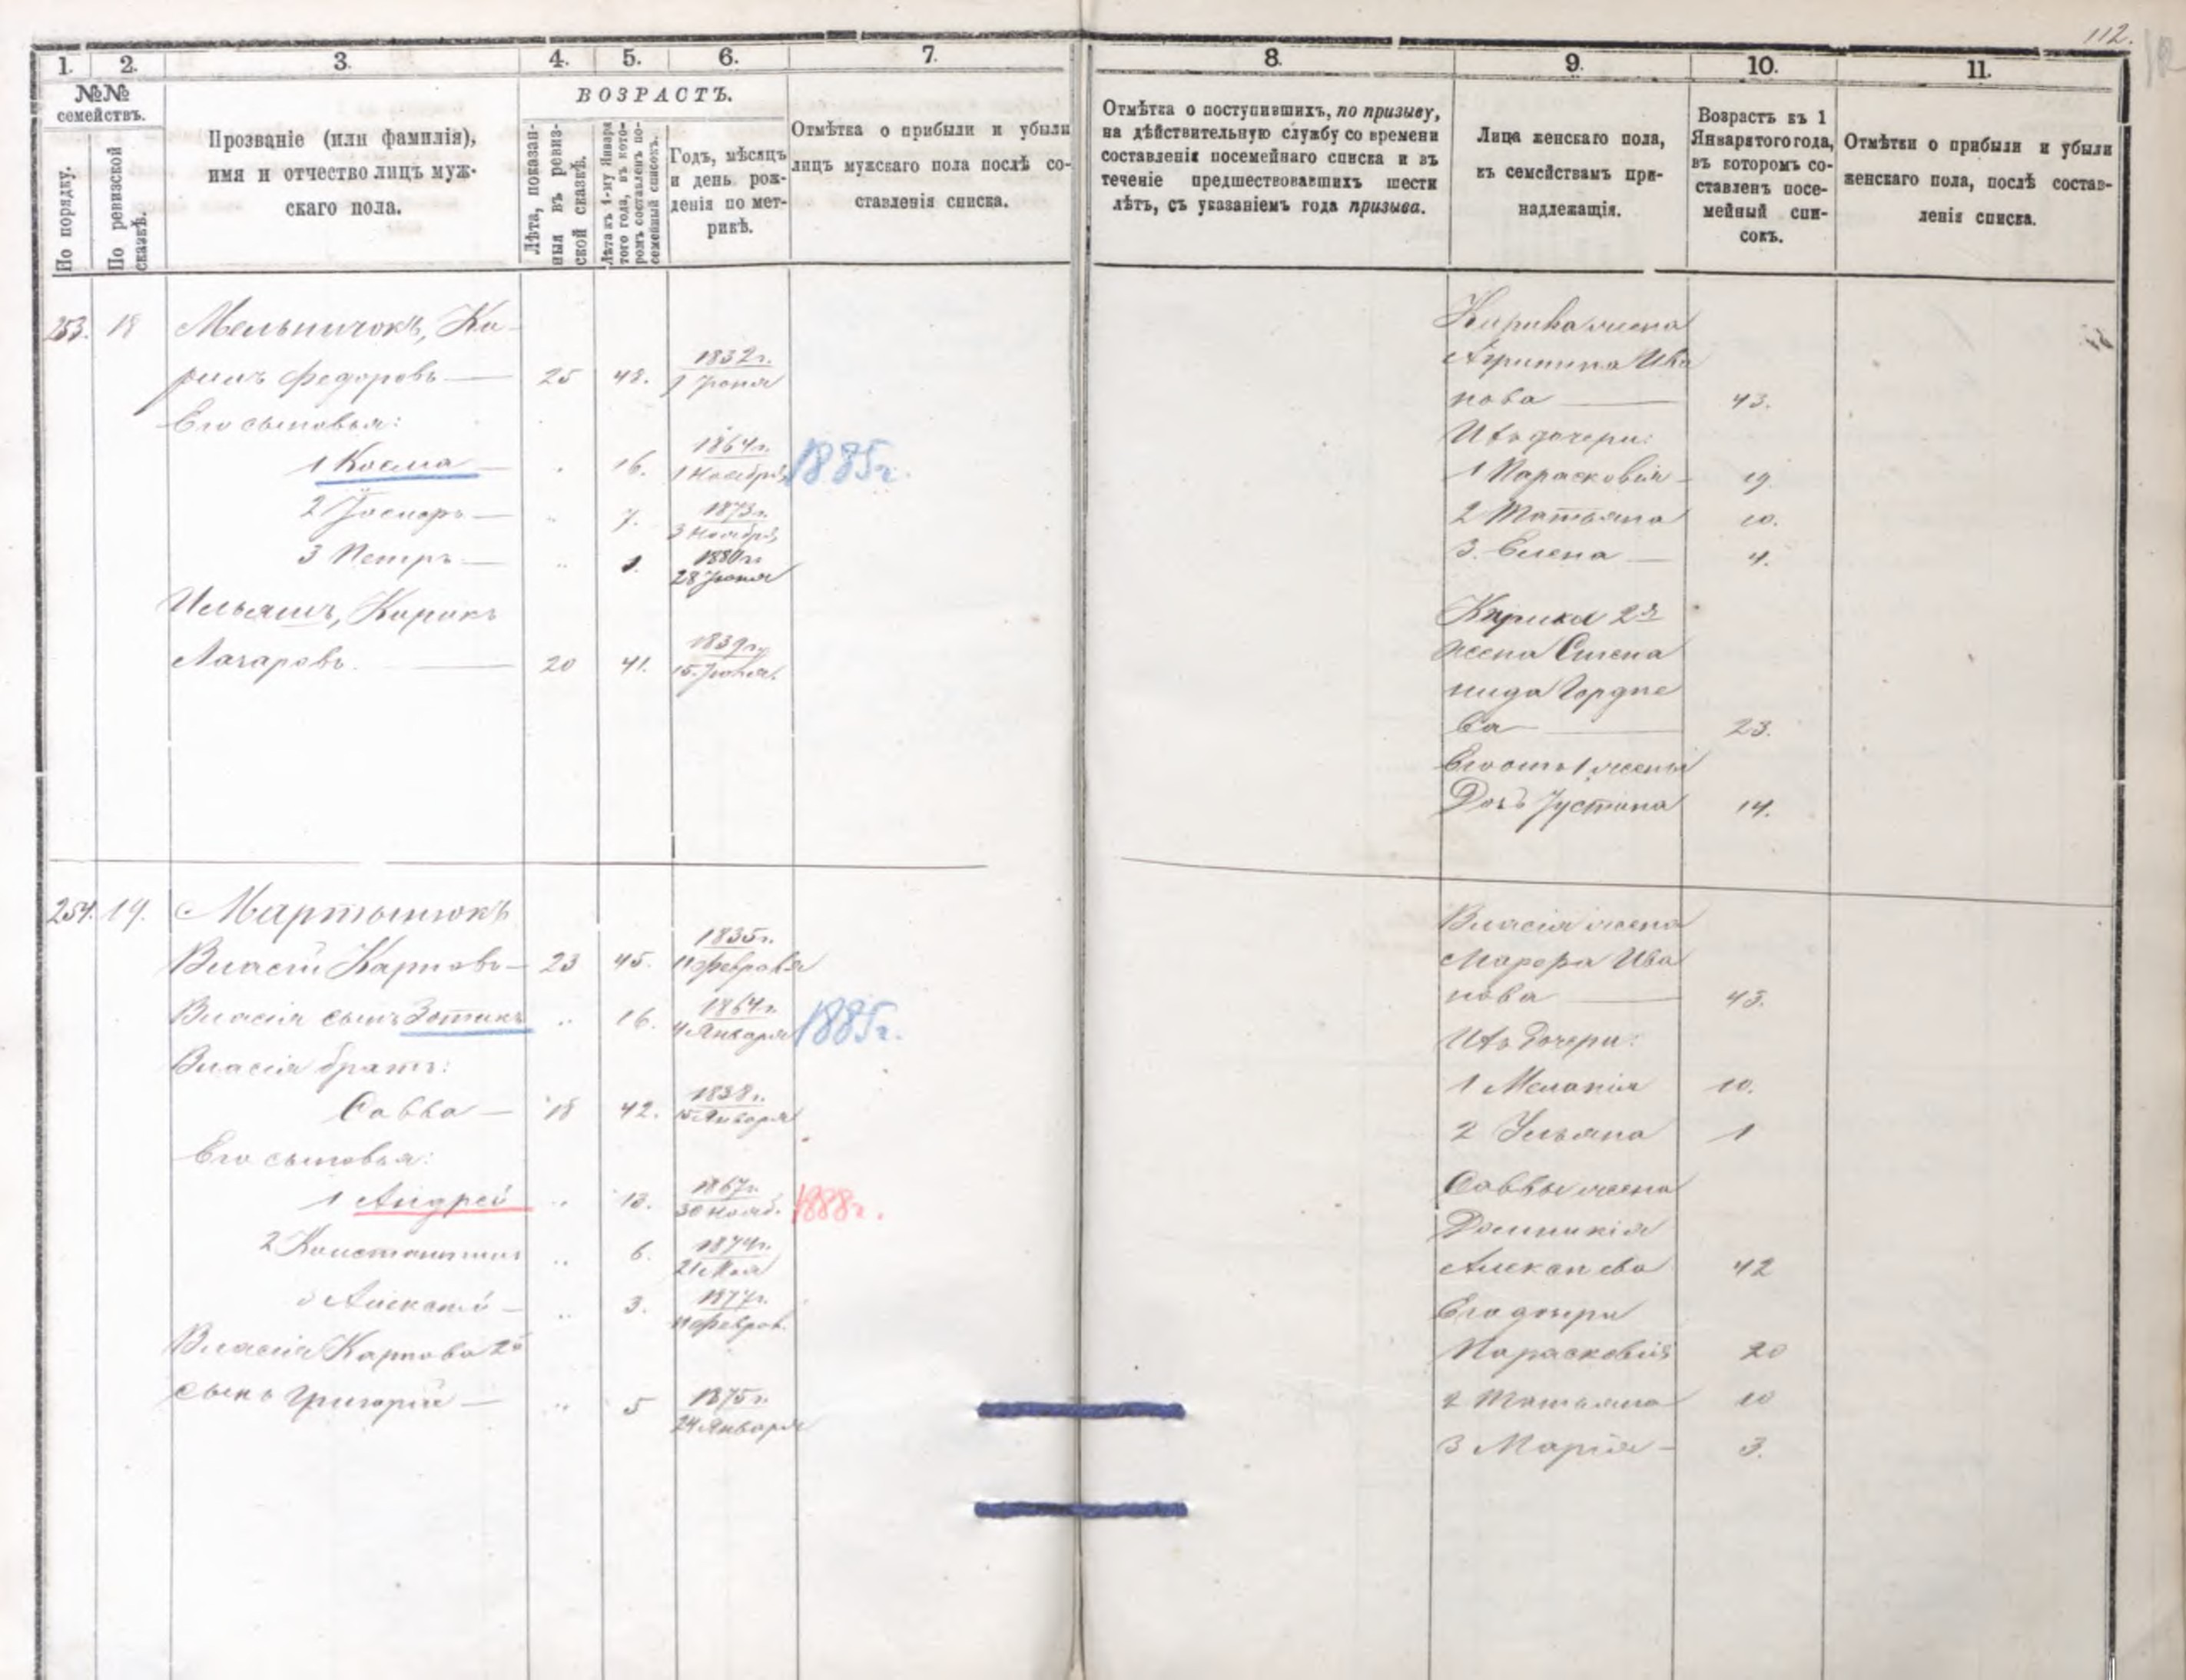 112.
1. 2. 3. 4. 5. 6. 7. 8. 9. 10. 11.
№№ семействъ.
По порядку.
По ревизской сказкѣ.
Прозваніе (или фамилія),
имя и отчество лицъ муж-
скаго пола.
ВОЗРАСТЪ.
Лѣта, показан-
ныя въ ревиз-
ской сказкѣ.
Лѣта къ 1-му Января
того года, въ кото-
ромъ составленъ по-
семейный списокъ.
Годъ, мѣсяцъ
и день рож-
денія по мет-
рикѣ.
Отмѣтка о прибыли и убыли
лицъ мужскаго пола послѣ со-
ставленія списка.
Отмѣтка о поступившихъ, по призыву,
на дѣйствительную службу со времени
составленія посемейнаго списка и въ
теченіе предшествовавшихъ шести
лѣтъ, съ указаніемъ года призыва.
Лица женскаго пола,
къ семействамъ при-
надлежащія.
Возрастъ къ 1
Января того года,
въ которомъ со-
ставленъ посе-
мейный спи-
сокъ.
Отмѣтки о прибыли и убыли
женскаго пола, послѣ состав-
ленія списка.
253. 18 Мельничокъ, Ки-
рикъ Федоровъ — 25 48. 1832г.
Его сыновья:
1 Косма — 16. 1864г. 1 Ноября 1885г.
2 — 7. 1873г. 3 Ноября
3 Петръ — 1. 1880г. 28
Ильяшъ, Кирикъ
Лазаровъ. — 20 41. 1839г. 15
Кирика жена
Агрипина Ива
нова — 43.
Ихъ дочери:
1 Парасковія — 19
2 Татьяна 10.
3. Елена — 4.
Кирика 2я
жена Степа
нида Гордіе
ва — 23.
Его отъ 1 жены
Дочь Іустина 14.
254. 19. Мартынюкъ
Власій Карповъ — 23 45. 1835г. 11 Февраля
Власія сынъ Зотикъ 16. 1864г. 4 Января 1885г.
Власія братъ:
Савва — 18 42. 1838г. 15 Января
Его сыновья:
1 Андрей 13. 1867г. 30 Нояб. 1888г.
2 Константинъ 6. 1874г. 21 Мая
3 Алексѣй — 3. 1877г. 11 Феврал.
Власія Карпова 2й
сынъ Григорій — 5 1875г. 24 Января
Власія жена
Марфа Ива
нова — 43.
Ихъ Дочери:
1 Меланія 10.
2 Ульяна 1
Саввы жена
Домникія
42
Его дочери
Парасковія 20
2 Татьяна 10
3 Марія — 3.